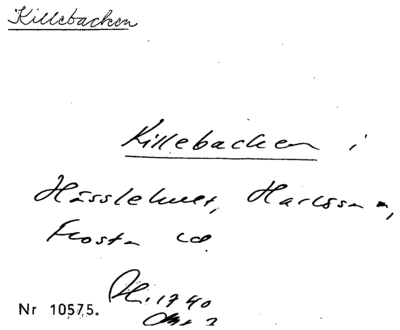 Killebacken
Killebacken i
Hässlehult, Harlösa s,
Frosta hd.
Nr 10575.
1740